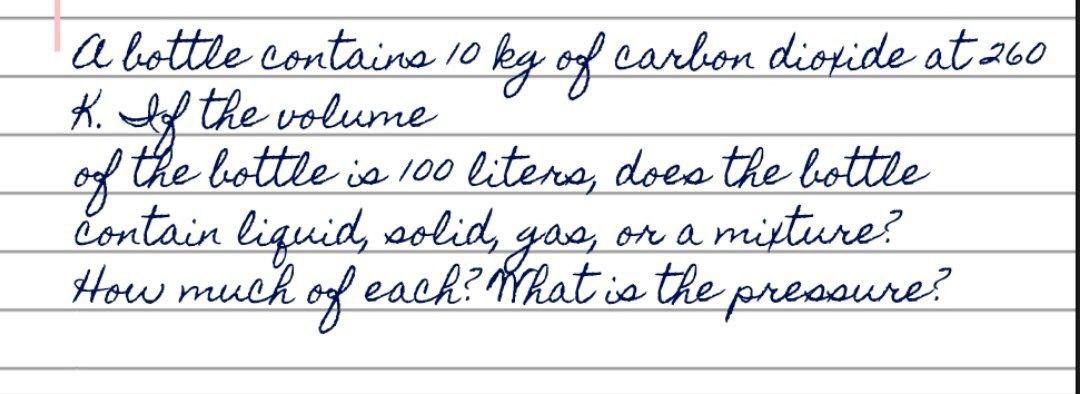 A bottle contains 10 kg of carbon dioxide at 260
K. If the volume
of the bottle is 100 liters, does the bottle
contain liquid, solid, gas, or a mixture?
How much of each? What is the pressure?